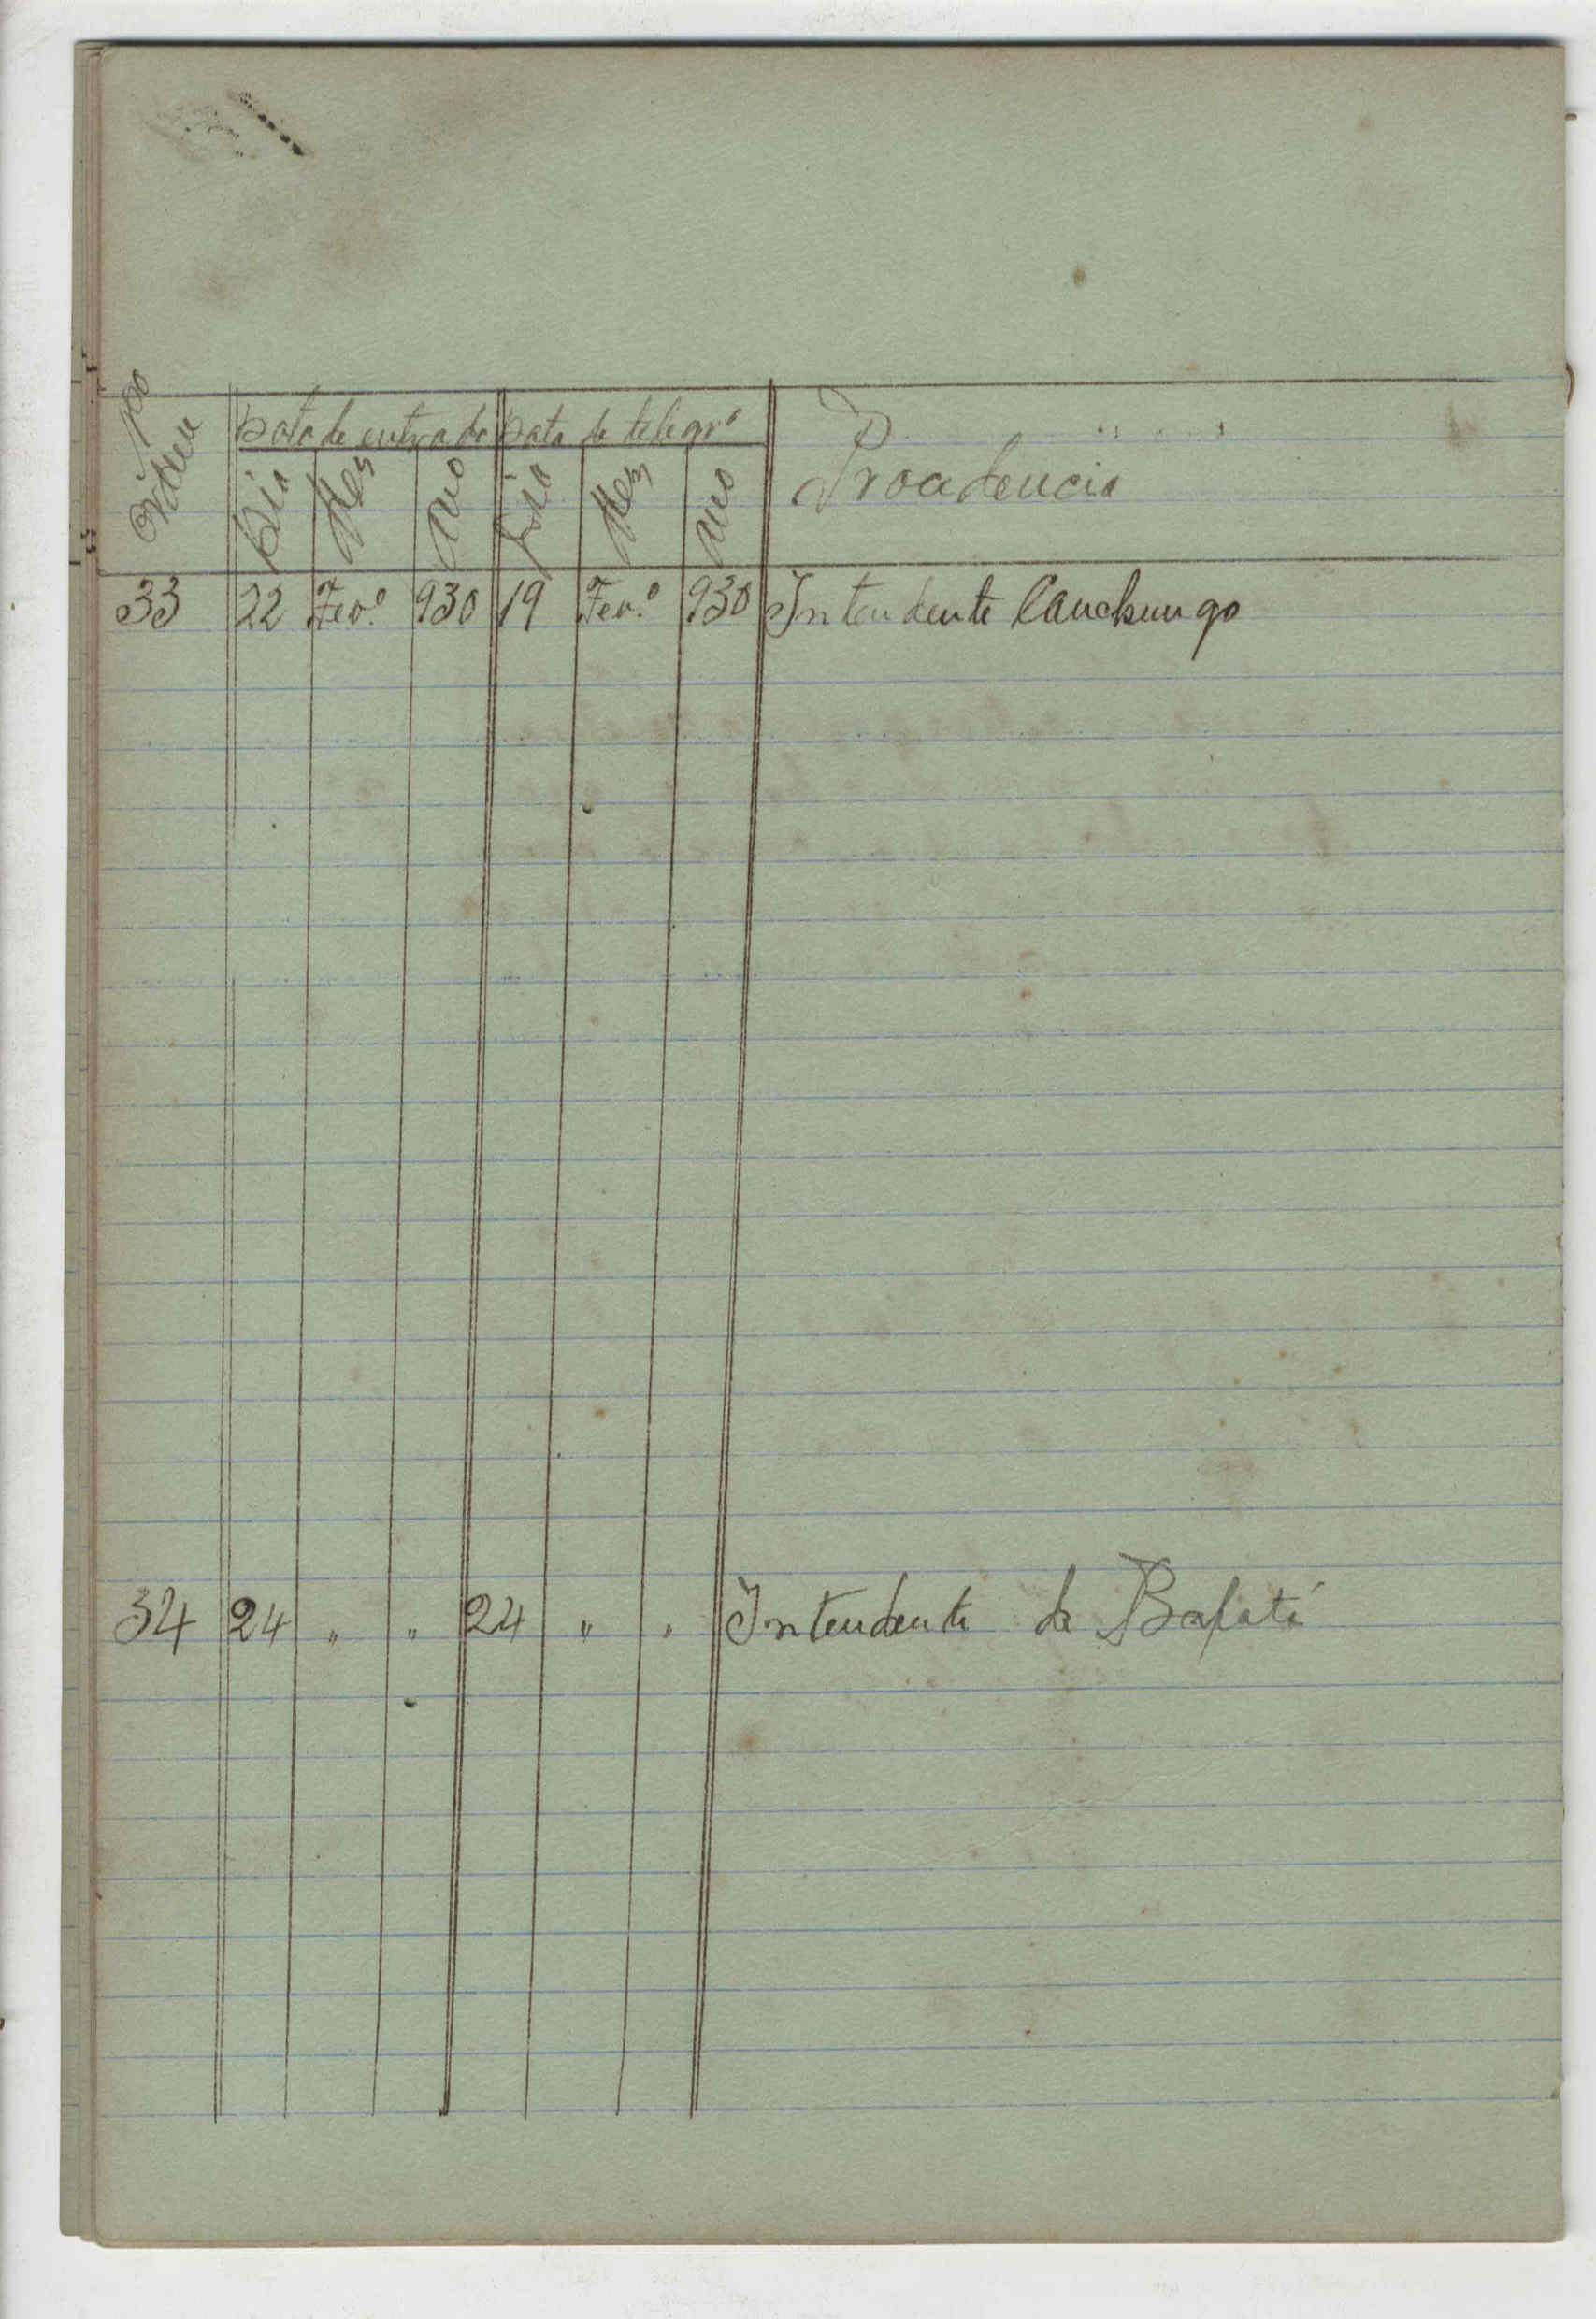 Nº de
Ordem
Data de entrada Data do telegrª
Dia Mez Ano Dia Mez Ano Procedencia
33 22 Fev.º 930 19 Fev.º 930 Intendente Canchungo
34 24 " " 24 " " Intendente de Bafatá